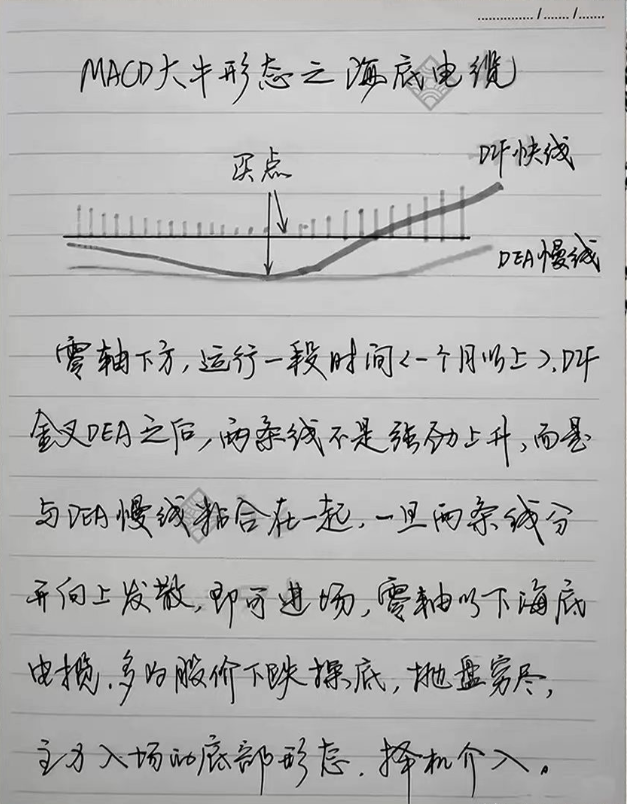 MACD大牛形态之海底电缆
买点
DIF快线
DEA慢线
零轴下方,运行一段时间<一个月以上>.DIF
金叉DEA之后,两条线不是强劲上升,而是
与DEA慢线粘合在一起,一旦两条线分
开向上发散,即可进场,零轴以下海底
电揽,多为股价下跌探底,抛盘穷尽,
主力入场的底部形态,择机介入。